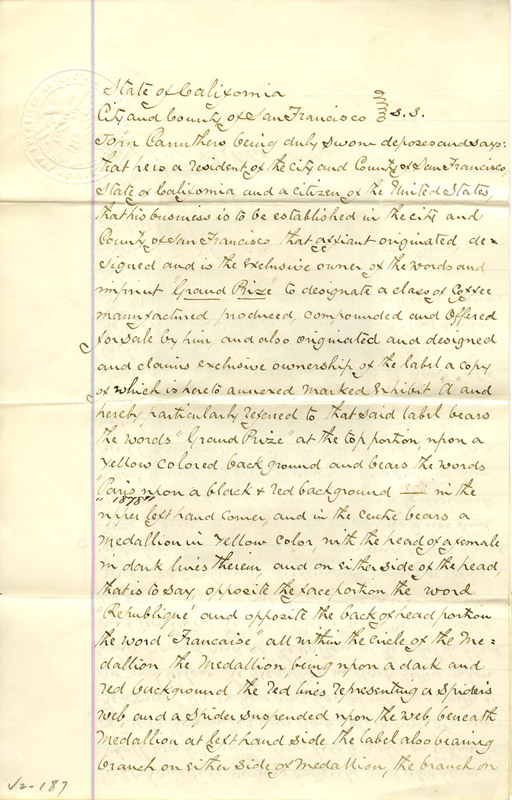 State of California
City and County of San Francisco } S.S.
John Carruthers being duly sworn deposes and says:
that he is a resident of the City and County of San Francisco,
State of California and a citizen of the United States,
that his business is to be established in the city and
County of San Francisco that affiant originated de=
signed and is the exclusive owner of the words and
imprint "Grand Prize" to designate a class of Coffee
manufactured produced, compounded and Offered
for sale by him, and also originated and designed
and claims exclusive ownership of the label a copy
of which is hereto annexed marked Exhibit "A" and
hereby particularly referred to that said label bears
the words "Grand Prize" at the top portion, upon a
yellow colored background and bears the words
"Paris upon a black & red background in the
"1878"
upper left hand corner, and in the centre bears a
medallion in yellow color, with the head of a female
in dark lines therein, and on either side of the head,
that is to say, opposite the face portion the word
"Republique' and opposite the back of head portion
the word "Francaise", all within the circle of the me=
dallion, the Medallion, being upon a dark and
red background the red lines representing a spider's
web and a spider suspended upon the web, beneath
Medallion at left hand side the label also bearing
branch on either side of medallion, the branch on
V2-187